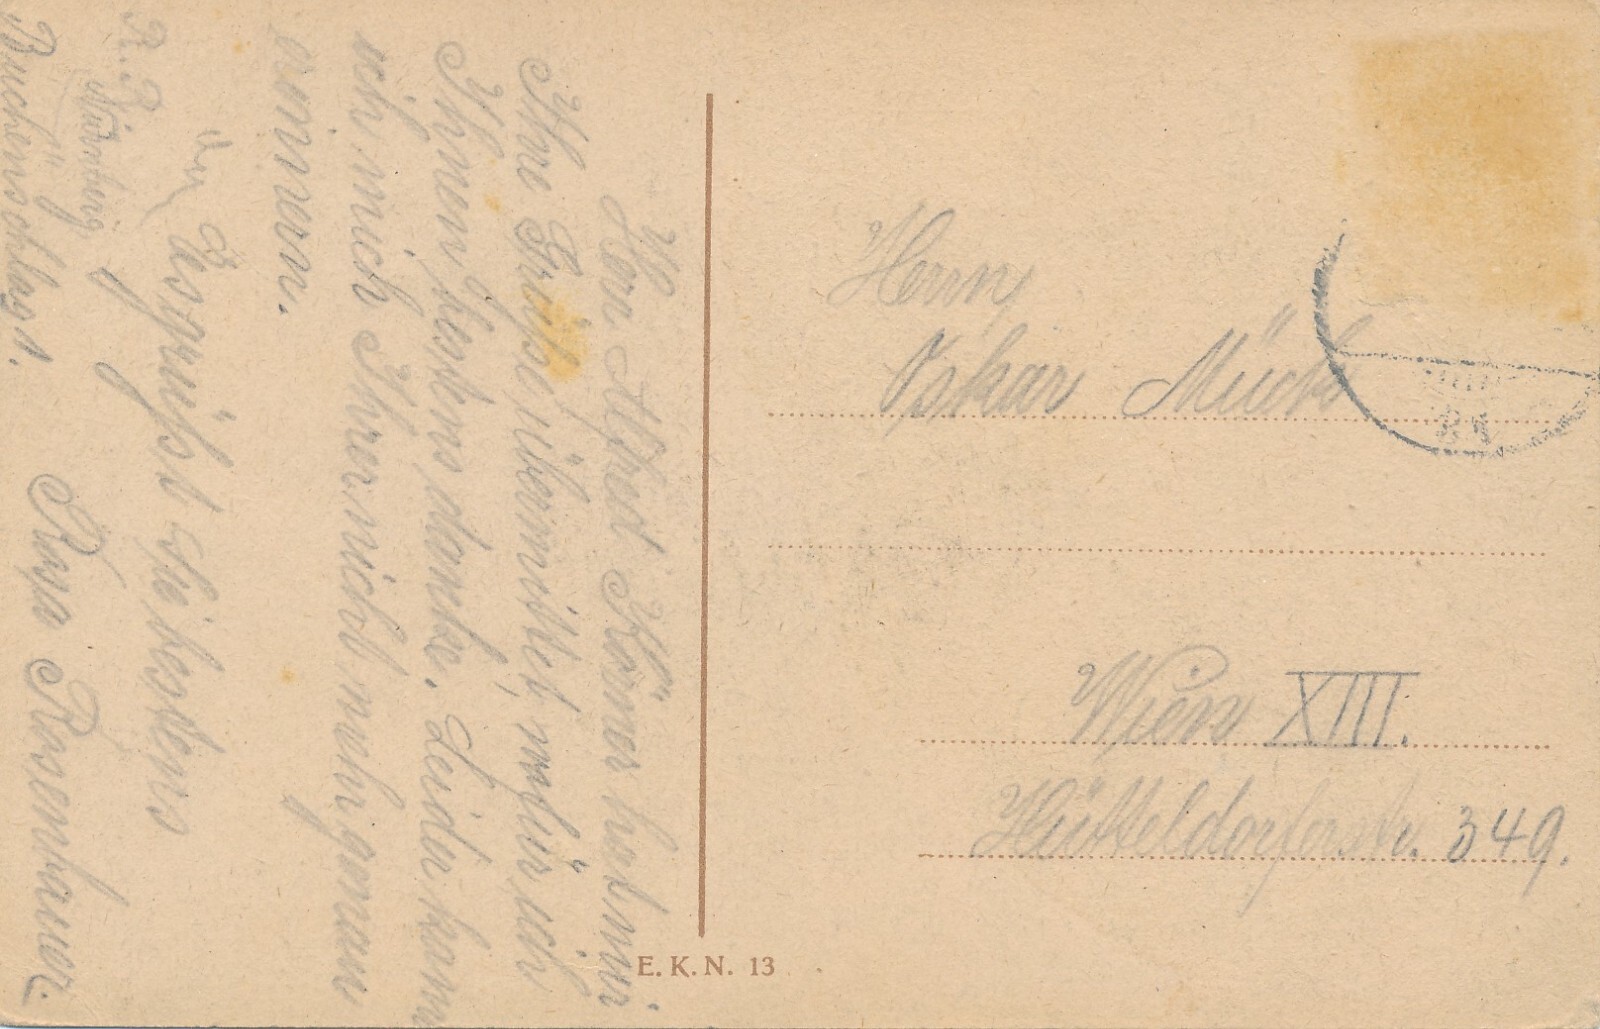 Herr Alfred Körner hat mir
Ihre Grüße übermittelt, wofür ich
Ihnen bestens danke. Leider kann
ich mich Ihrer nicht mehr genau
erinnern.
Es grüßt Sie bestens
Rosa Rosenbauer.
Nürnberg
Buchenschlag 1.
Herrn
Oskar Mück
Wien XIII.
Hütteldorferstr. 349.
E. K. N. 13